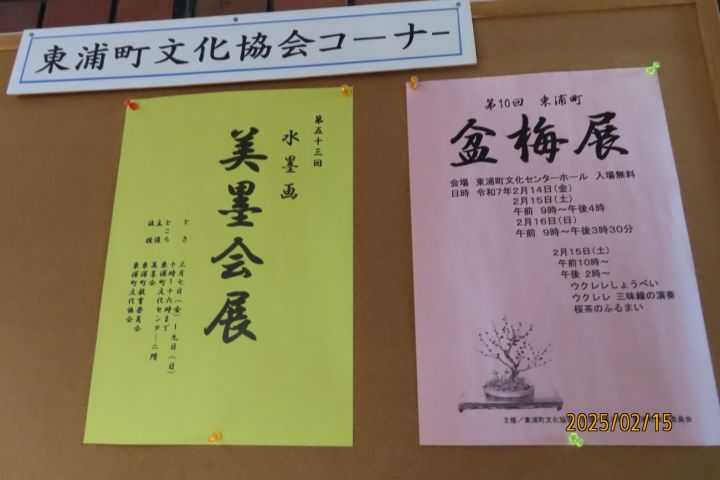 東浦町文化協会コーナー
第五十三回
水墨画
美墨会展
とき 三月七日(金)ー九日(日)
十時ー十六時まで
ところ 東浦町文化センター二階
主催 美墨会
後援 東浦町教育委員会
東浦町文化協会
第10回 東浦町
盆梅展
会場 東浦町文化センターホール 入場無料
日時 令和7年2月14日(金)
2月15日(土)
午前 9時～午後4時
2月16日(日)
午前 9時～午後3時30分
2月15日(土)
午前10時～
午後 2時～
ウクレレしょうべい
ウクレレ 三味線の演奏
桜茶のふるまい
主催／東浦町文化協
委員会
2025/02/15